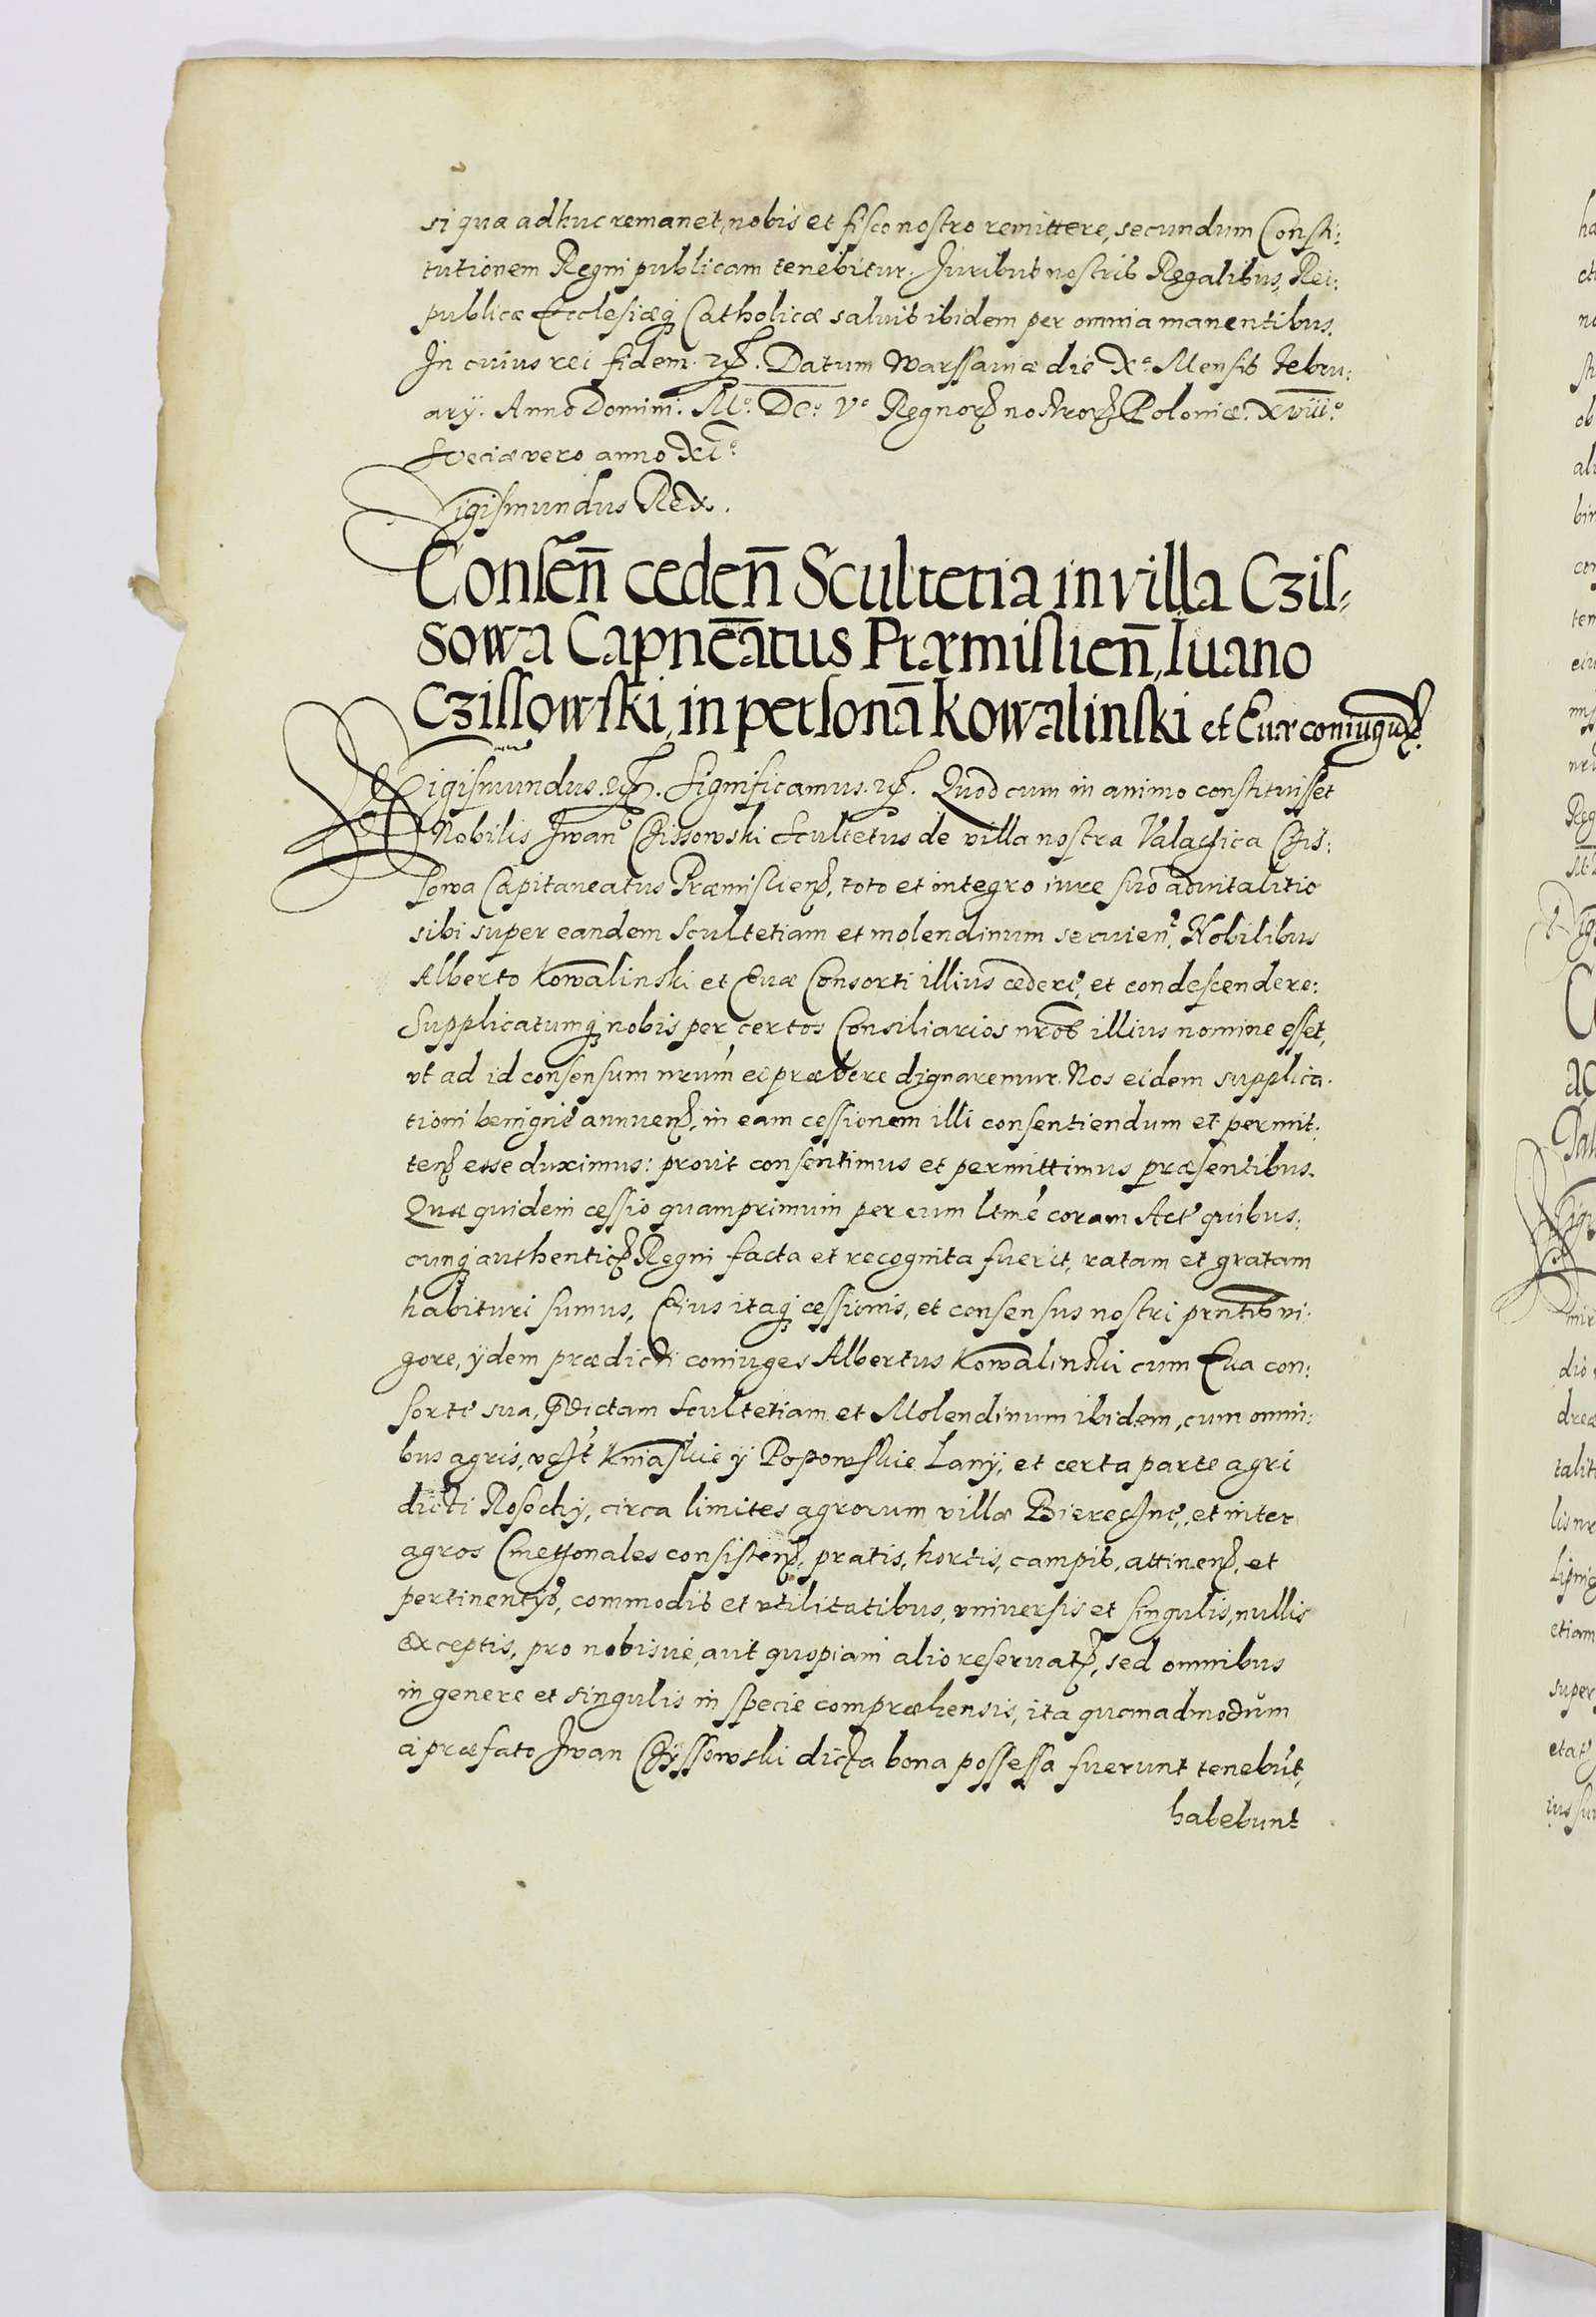 si quæ adhuc remanet, nobis et fisco nostro remittere, secundum Consti:
tutionem Regni publicam tenebitur. Juribus nostris Regalibus, Rei:
publicæ Ecclesiæq Catholicæ salvis ibidem per omnia manentibus.
In cuius rei fidem. Datum Warssaviæ die X. Mensis Febru:
arÿ. Anno Domini. Mo. DCo. Vo Regnor nostror Poloniæ. XVIIIo
Sveciæ vero anno XIo
Sigismundus Rex.
Consen ceden Scultetia in villa Czis-
sowa Capneatus Præmislien, Iuano
Czissowski, in persona Kowalinski et Euæ coniugu
Sigismundus. Significamus. Quod cum in animo constituisset
Nobilis Iwan Czissowski Scultetus de villa nostra Valachica Czis:
sowa Capitaneatus Præmislien, toto et integro iure suo advitalitio
sibi super eandem Scultetiam et molendinum servien, Nobilibus
Alberto Kowalinski et Evæ Consorti illius cedere, et condescendere:
Supplicatumq nobis per certos Consiliarios nros illius nomine esset,
vt ad id consensum nrum ei præbere dignaremur. Nos eidem supplica.
tioni benigne annuen, in eam cessionem illi consentiendum et permit.
ten esse duximus: provt consentimus et permittimus præsentibus.
Quæ quidem cessio quamprimum per eum ltme coram Act quibus:
cunq authentic Regni facta et recognita fuerit, ratam et gratam
habituri sumus, Eius itaq cessionis, et consensus nostri prntib vi:
gore, ÿdem prædicti coniuges Albertus Kowalinski cum Eva con:
sorte sua, pdictam Scultetiam et Molendinum ibidem, cum omni:
bus agris, Kniaskie ÿ Popowskie Lanÿ, et certa parte agri
dicti Rosochÿ, circa limites agrorum villæ et inter
agros Cmetonales consisten, pratis, hortis, campis, attinen, et
pertinentÿs, commodis et vtilitatibus, vniversis et singulis, nullis
exceptis, pro nobisve, aut quopiam alio reservat, sed omnibus
in genere et singulis in specie compræhensis, ita quemadmodum
a præfato Iwan Czÿssowski dicta bona possessa fuerunt tenebut,
habebunt